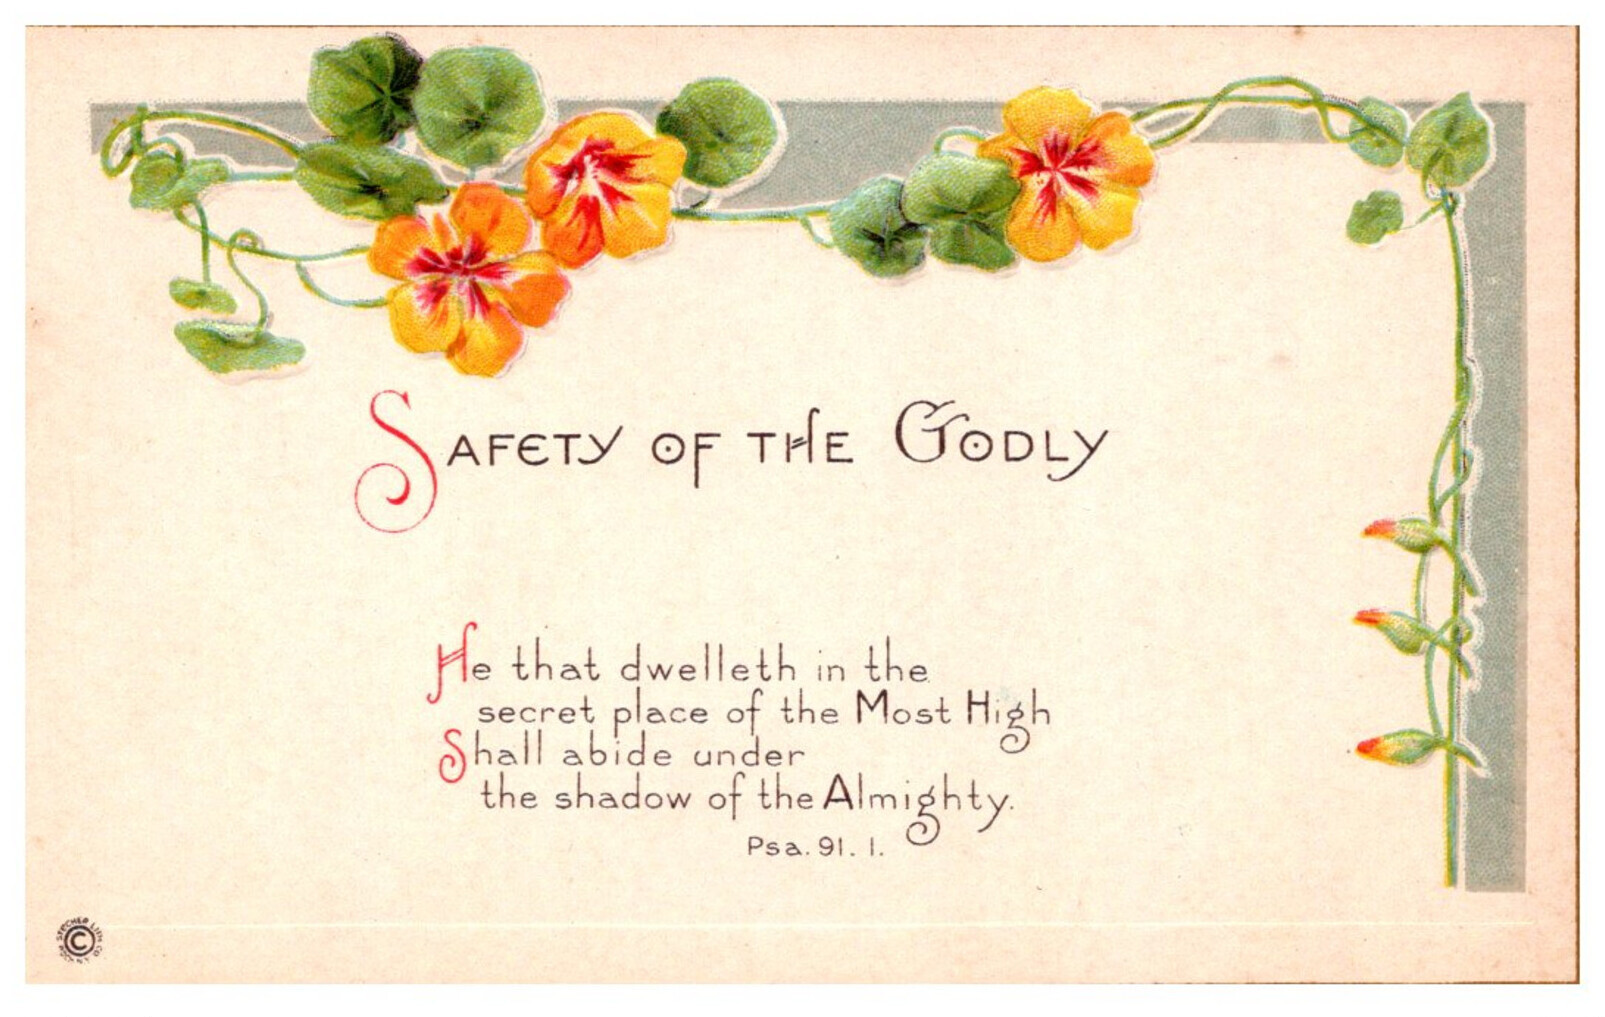 Safety of the Godly
He that dwelleth in the
secret place of the Most High
Shall abide under
the shadow of the Almighty.
Psa. 91. 1.
© STECHER LITH CO ROCH. N.Y.